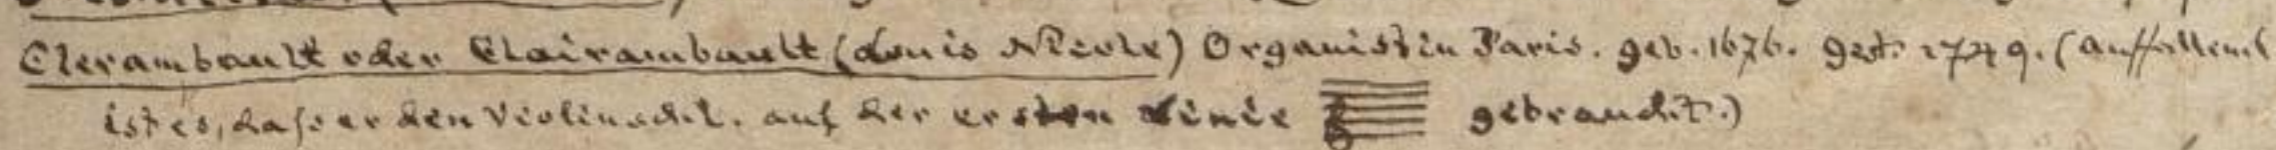 Clerambault oder Clairambault (Louis Nicole) Organist in Paris. geb. 1676. gest. 1749. (auffallend
ist es, dass er den Violinschl. auf der ersten Linie gebraucht.)